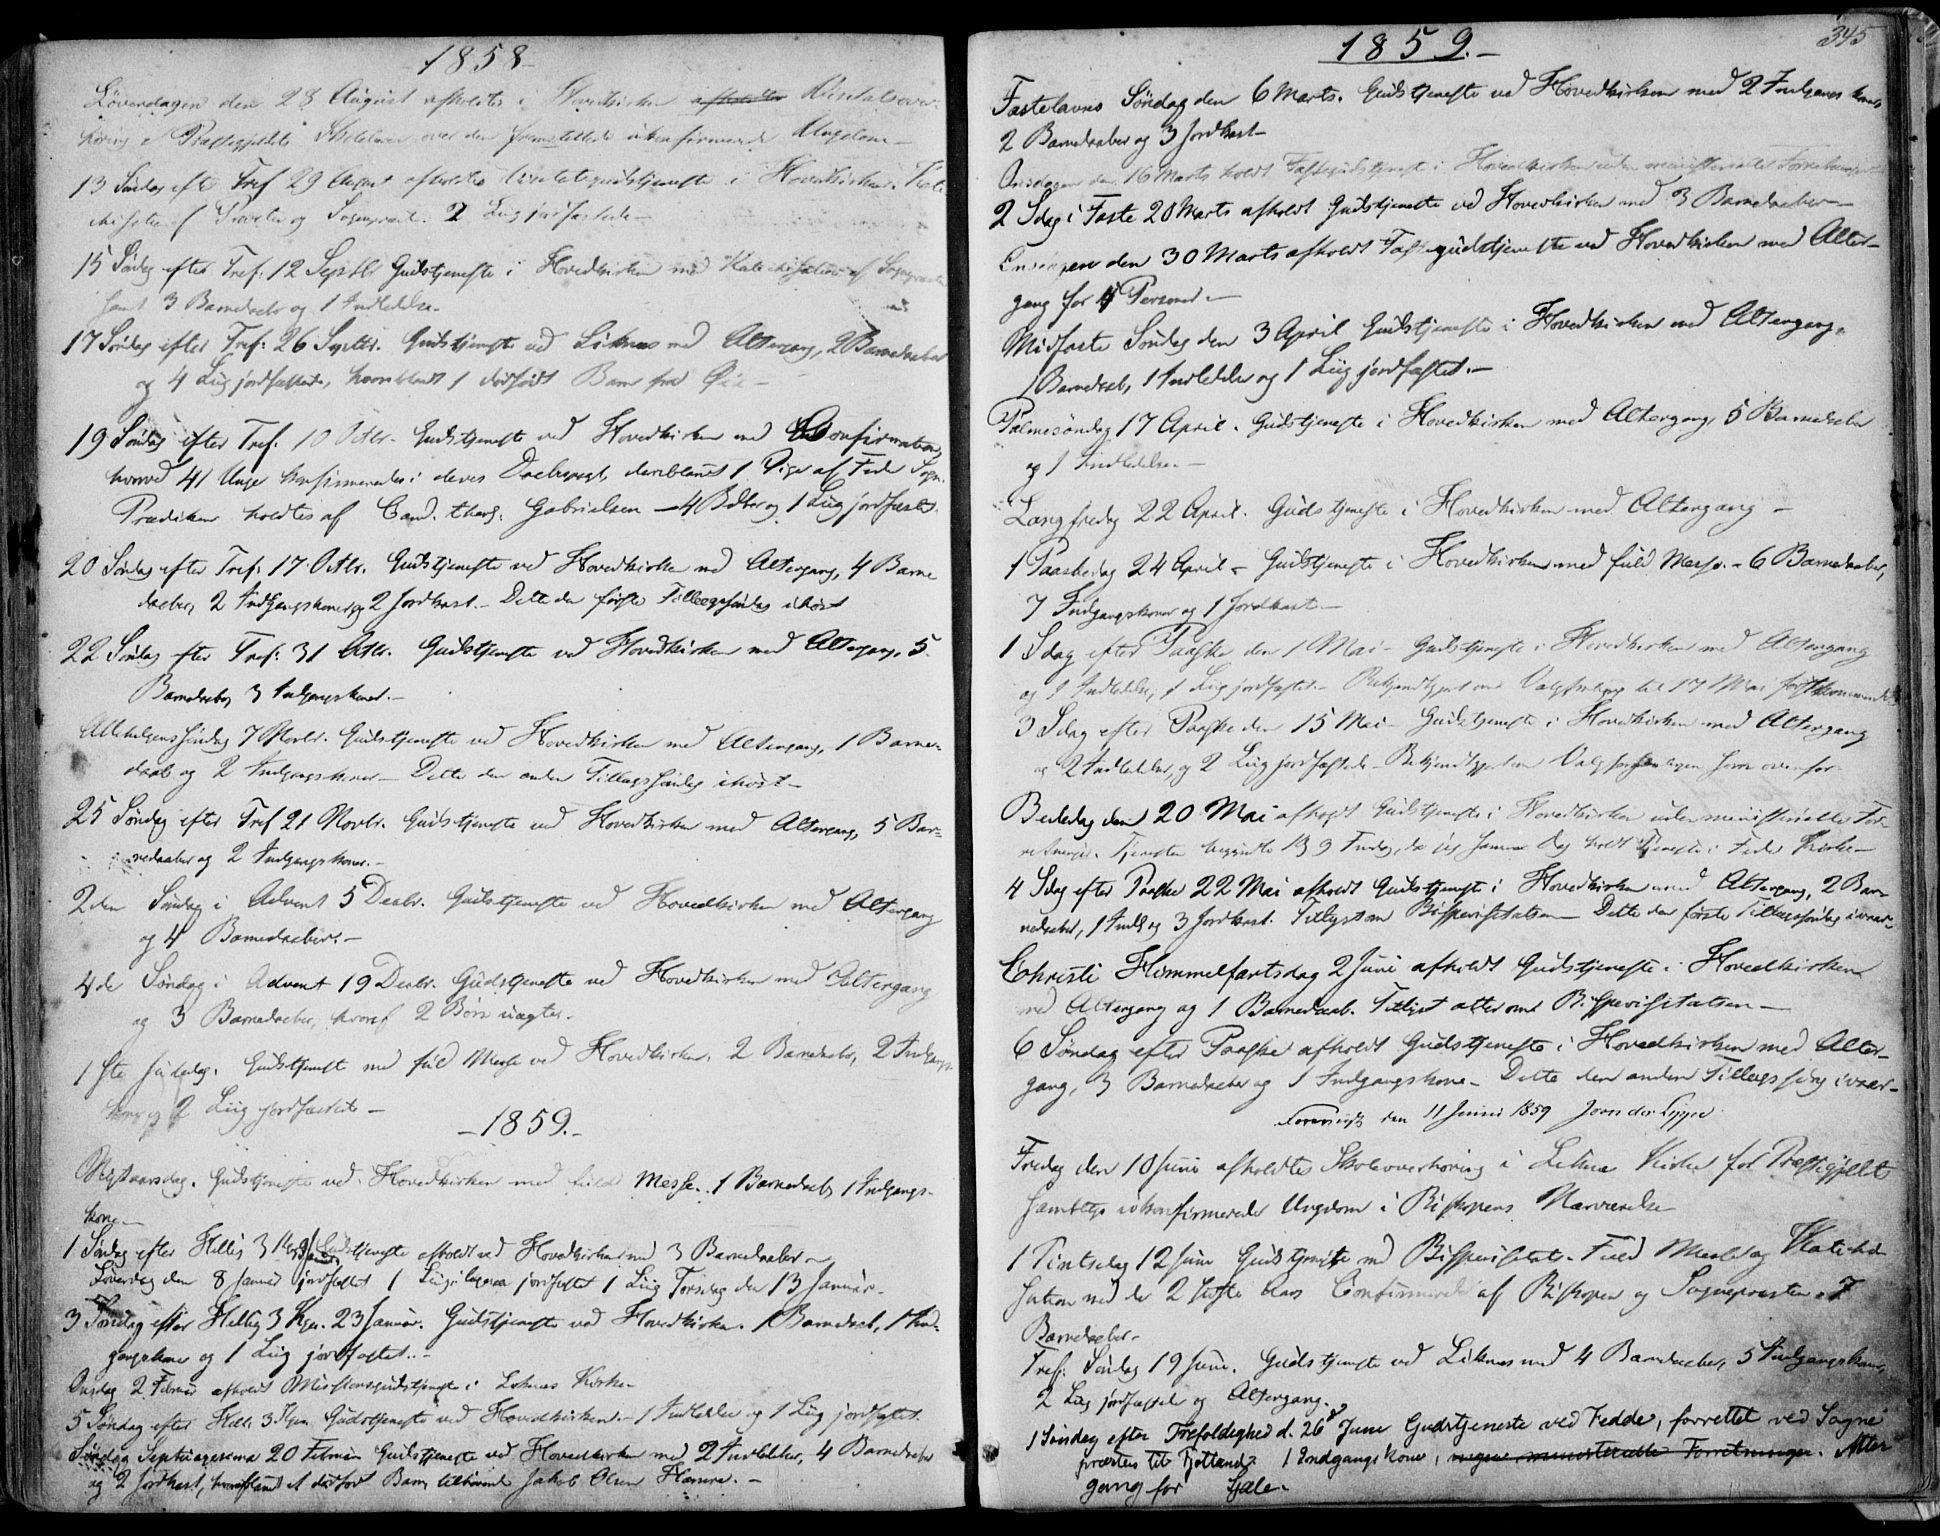 1858
Løverdagen den 28 August afholdtes i Hovedkirken afholdtes Visitatsover-
høring af Præstegjeldets Skolelærere over den fremstillede ukonfirmerede Ungdom –
13 Søndag efter Tref 29 August afholdtes Visitatsgudstjeneste i Hovedkirken. Kate-
chisation af Provsten og Sognepræst. 2 Liig jordfæstede –
15 Søndag efter Tref: 12 Septbr Gudstjeneste i Hovedkirken med Katechisation af Sognepræsten
samt 3 Barnedaab og 1 Indledelse.
17 Søndag efter Tref: 26 Septbr. Gudstjeneste ved Liknes med Altergang, 2 Barnedaab
og 4 Liig jordfæstede, hvoriblandt 1 dødfødt Barn fra
19 Søndag efter Tref: 10 Octbr. Gudstjeneste ved Hovedkirken med Confirmation,
hvorved 41 Unge konfirmeredes i deres Daabspagt, deriblandt 1 Pige af Fede Sogn.
Prædiken holdtes af Cand. theol: Gabrielsen – 4 Bdb og 1 Liig jordfæstet.
20 Søndag efter Tref: 17 Octbr. Gudstjeneste ved Hovedkirken med Altergang, 4 Barne
daaber, 2 Indgangskoner og 2 Jordkast. – Dette den første Tillægssøndag ihøst
22 Søndag efter Tref: 31 Octbr. Gudstjeneste ved Hovedkirken med Altergang, 5
Barnedaaber, 3 Indgangskoner. –
Allehelgenssøndag 7 Novbr. Gudstjeneste ved Hovedkirken med Altergang, 1 Barne-
daab og 2 Indgangskoner – Dette den anden Tillægssøndag ihøst –
25 Søndag efter Tref 21 Novbr. Gudstjeneste ved Hovedkirken med Altergang, 5 Bar-
nedaaber og 2 Indgangskoner. –
2den Søndag i Advent 5 Decbr. Gudstjeneste ved Hovedkirken med Altergang
og 4 Barnedaaber. –
4de Søndag i Advent 19 Decbr. Gudstjeneste ved Hovedkirken med Altergang
og 3 Barnedaaber, hvoraf 2 Børn uægte. –
1ste Juledag. Gudstjeneste med fuld Messe ved Hovedkirken. 2 Barnedaab, 2 Indgangs-
koner og 2 Liig jordfæstet –
– 1859. –
Nytaarsdag. Gudstjeneste ved Hovedkirken med fuld Messe. 1 Barnedaab, 1 Indgangs-
kone –
1 Søndag efter Hellig 3 Kg. 9 Januar Gudstjeneste afholdt ved Hovedkirken med 3 Barnedaaber –
Løverdag den 8 Januar jordfæstet 1 Liig, jordfæstet 1 Liig Torsdag den 13 Januar –
3 Søndag efter Hellig 3 Kgr. 23 Januar. Gudstjeneste ved Hovedkirken. 1 Barnedaab, 1 Ind-
gangskone og 1 Liig jordfæstet. –
Onsdag 2 Februar afholdt Missionsgudstjeneste i Liknes Kirke –
5 Søndag efter Hell: 3 Kgr. Gudstjeneste ved Hovedkirken. – 1 Indledelse og 1 Liig jordfæstet.
Søndag Septuagesima 20 Februar Gudstjeneste ved Hovedkirken med 2 Indledelser, 4 Barnedaaber
og 2 Jordkast, hvoriblandt et dødfødt Barn, tilhørende Jakob Olsen Hamre. –
345
1859. –
Fastelavns Søndag den 6 Marts. Gudstjeneste ved Hovedkirken med 2 Indgangskoner,
2 Barnedaaber og 3 Jordkast –
Onsdagen den 16 Marts holdt Fastegudstjeneste i Hovedkirken uden ministerielle Forretninger
2 Sdag i Faste 20 Marts afholdt Gudstjeneste ved Hovedkirken med 3 Barnedaaber –
Onsdagen den 30 Marts afholdt Fastegudstjeneste ved Hovedkirken med Alter-
gang for 4 Personer. –
Midfaste Søndag den 3 April Gudstjeneste i Hovedkirken med Altergang,
1 Barnedaab, 1 Indledelse og 1 Liig jordfæstet. –
Palmesøndag 17 April. Gudstjeneste i Hovedkirken med Altergang, 5 Barnedaaber
og 1 Indledelse. –
Langfredag 22 April. Gudstjeneste i Hovedkirken med Altergang –
1 Paaskedag 24 April – Gudstjeneste i Hovedkirken med fuld Messe. – 6 Barnedaaber,
7 Indgangskoner og 1 Jordkast –
1 Sdag efter Paaske den 1 Mai – Gudstjeneste i Hovedkirken med Altergang
og 1 Indledelse, 1 Liig jordfæstet. – Bekjendtgjort om Valgforsamling til 17 Mai førstkommende
3 Sdag efter Paaske den 15 Mai – Gudstjeneste i Hovedkirken med Altergang
og 2 Indledelser, og 2 Liig jordfæstede – Bekjendtgjort om Valgforsamlingen som ovenfor –
Bededag den 20 Mai afholdt Gudstjeneste i Hovedkirken uden ministerielle For-
retninger. Tjenesten begyndte Kl 9 Formdg, da jeg samme Dag holdt Tjeneste i Fede Kirke –
4 Sdag efter Paaske 22 Mai afholdt Gudstjeneste i Hovedkirken med Altergang, 2 Bar-
nedaaber, 1 Indl. og 3 Jordkast. Tillyst om Bispevisitatsen – Dette den første Tillægssøndag ivaar –
Christi Himmelfartsdag 2 Juni afholdt Gudstjeneste i Hovedkirken
med Altergang og 1 Barnedaab. Tillyst atter om Bispevisitatsen –
6 Søndag efter Paaske afholdt Gudstjeneste i Hovedkirken med Alter-
gang, 3 Barnedaaber og 1 Indgangskone – Dette den anden Tillægssøndag ivaar –
Foreviist den 11 Juni 1859 J von der Lippe
Fredag den 10 Juni afholdtes Skoleoverhøring i Liknes Kirke for Præstegjeldets
samtlige ukonfirmerede Ungdom i Biskopens Nærværelse
1 Pintsedag 12 Juni Gudstjeneste med Bispevisitats. Fuld Messe og Kateche-
sation med de 2 sidste Aars Confirmerede af Biskopen og Sognepræsten. 7
Barnedaaber –
Tref: Søndag 19 Juni. Gudstjeneste ved Liknes med 4 Barnedaaber, 5 Indgangskoner,
2 Liig jordfæstede og Altergang.
1 Søndag efter Trefoldighed d. 26de Juni Gudstjeneste ved Fedde, forrettet ved Sogne
præsten til Fjotland. 1 Indgangskone, ingen ministerielle Forretninger. Alter
gang for Sjæle.